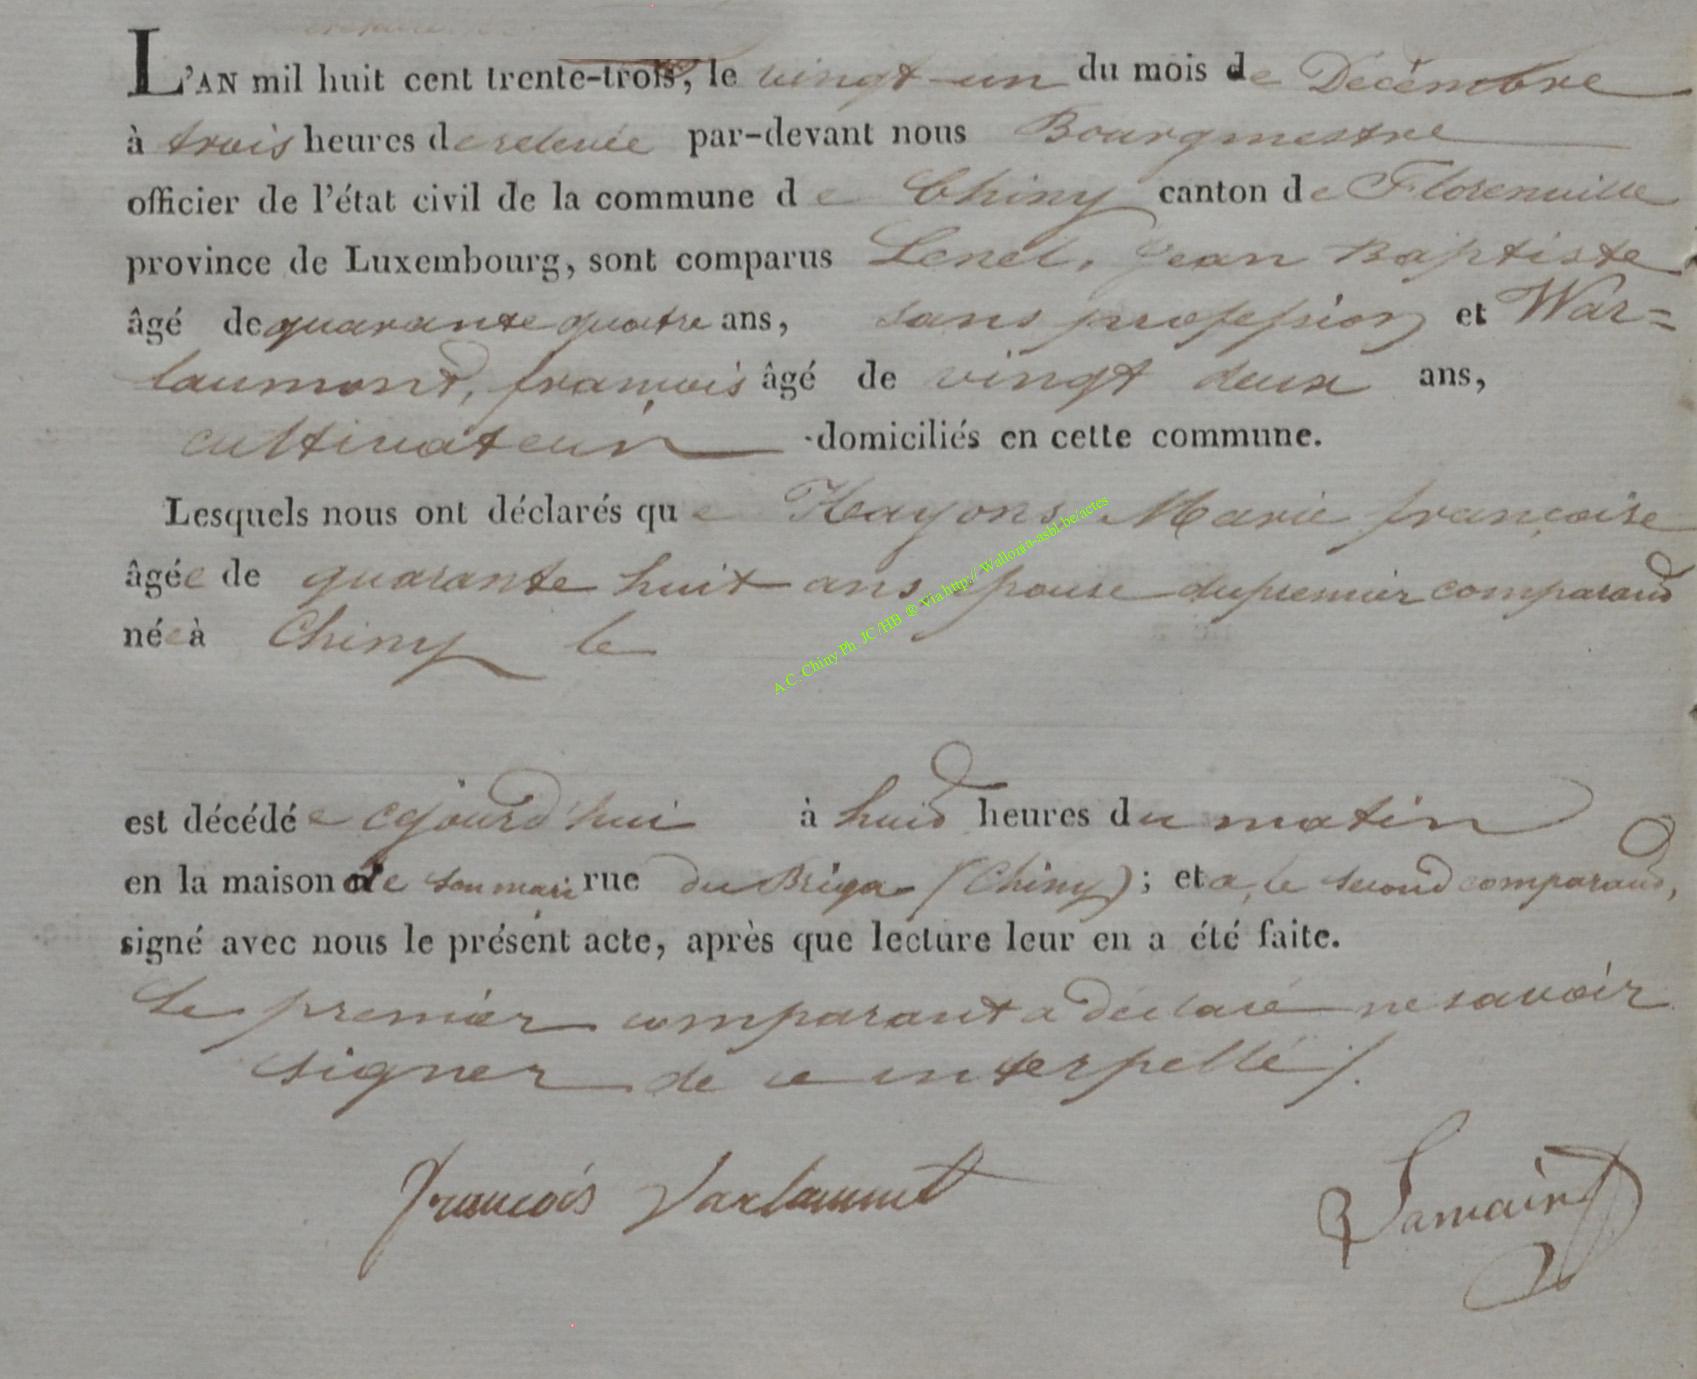 L'AN mil huit cent trente-trois, le vingt-un du mois de Décembre
à trois heures de relevée par-devant nous Bourgmestre
officier de l'état civil de la commune de Chiny canton de Florenville
province de Luxembourg, sont comparus Lenel, Jean Baptiste
âgé de quarante quatre ans, sans profession et War=
laumont, françois âgé de vingt deux ans,
cultivateur domiciliés en cette commune.
Lesquels nous ont déclarés que Hayons, Marie françoise
âgée de quarante huit ans épouse du premier comparand
née à Chiny le
est décédée cejourd'hui à huid heures du matin
en la maison de son mari rue du Briga (Chiny); et a, le second comparand,
signé avec nous le présent acte, après que lecture leur en a été faite.
Le premier comparant a déclaré ne savoir
signer de ce interpellé ./.
François Varlaumont
A.C. Chiny Ph. JC/HB © Via http://Wallonia-asbl.be/actes